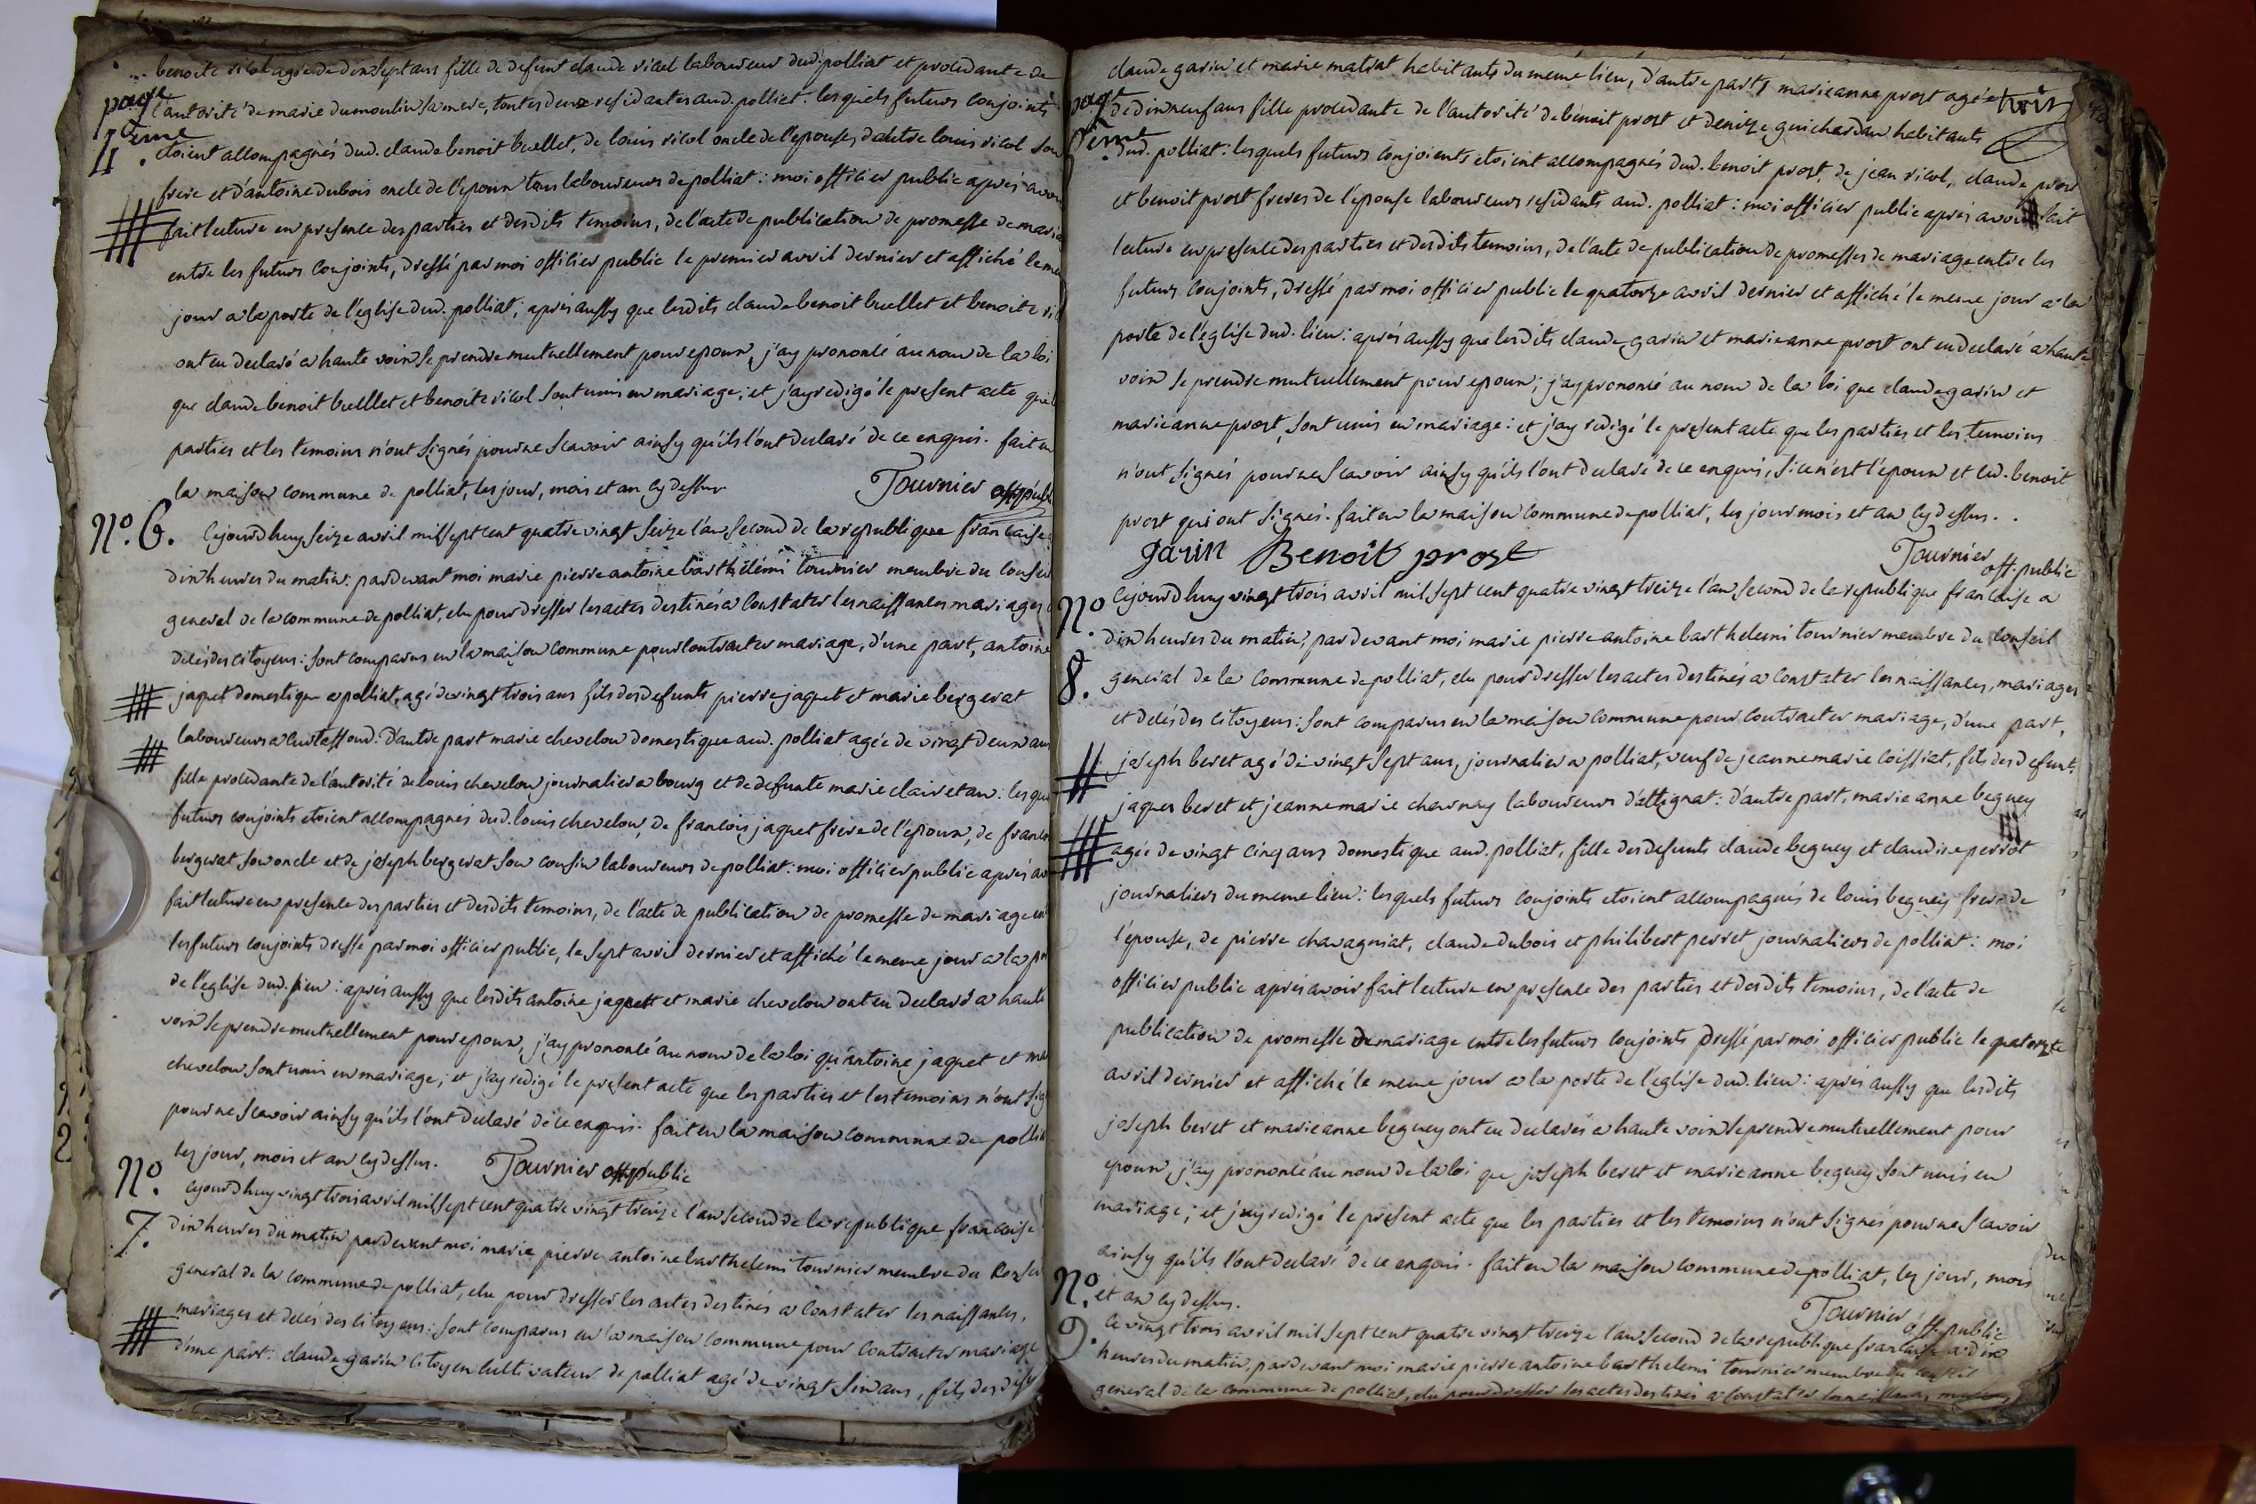 benoite ricol agée de dixsept ans fille de defunt claude ricol laboureur dud. polliat et procedante de
page
l'autorité de marie dumoulin sa mere, toutes deux residantes aud. polliat. lesquels futurs conjoints
4eme
etoient accompagnés dud. claude benoit buellet, de louis ricol oncle de l'epouse, d'autre louis ricol son
frere et d'antoine dubois oncle de l'epoux tous laboureurs de polliat : moi officier public après avoir
fait lecture en presence des parties et desdits temoins, de l'acte de publication de promesse de maria
entre les futurs conjoints, dressé par moi officier public le premier avril dernier et affiché le me
jour a la porte de l'église dud. polliat ; après aussy que lesdits claude benoit buellet et benoite ri
ont eu declaré a haute voix se prendre mutuellement pour epoux, j'ay prononcé au nom de la loi
que claude benoit buellet et benoite ricol sont unis en mariage ; et j'ay redigé le present acte que l
parties et les temoins n'ont signés pour ne scavoir ainsy qu'ils l'ont declaré de ce enquis. fait en
la maison commune de polliat, les jour, mois et an cy dessus.
Tournier off publ
N°. 6.
Cejourd'huy seize avril mil sept cent quatre vingt seize l'an second de la republique francaise a
dix heures du matin : pardevant moi marie pierre antoine barthélémi tournier membre du conseil
general de la commune de polliat, elu pour dresser les actes destinés a constater les naissances mariages
décés des citoyens : sont comparus en la maison commune pour contracter mariage, d'une part, antoine
jaquet domestique a polliat, agé de vingt trois ans fils des defunts pierre jaquet et marie bergerat
laboureurs a curtaffond. d'autre part marie chevelou domestique aud. polliat agée de vingt deux ans
fille procedante de l'autorité de louis chevelou journalier a bourg et de defunte marie clair et an : lesque
futurs conjoints etoient accompagnés dud. louis chevelou, de francois jaquet frere de l'epoux, de francoi
bergerat son oncle et de joseph bergerat son cousin laboureurs de polliat : moi officier public après av
fait lecture en presence des parties et desdits temoins, de l'acte de publication de promesse de mariage en
les futurs conjoints dressé par moi officier public, le sept avril dernier et affiché le meme jour a la po
de l'eglise dud. lieu : après aussy que lesdits antoine jaquet et marie chevelou ont eu declaré a haute
voix se prendre mutuellement pour epoux, j'ay prononcé au nom de la loi qu'antoine jaquet et ma
chevelou sont unis en mariage ; et j'ay redigé le present acte que les parties et les temoins n'ont sig
pour ne scavoir ainsy qu'ils l'ont declaré de ce enquis. fait en la maison commune de pollia
les jour, mois et an cy dessus.
Tournier off public
N°.
Cejourd'huy vingt trois avril mil sept cent quatre vingt treize l'an second de la republique francaise
7.
dix heures du matin pardevant moi marie pierre antoine barthelemi tournier membre du Conseil
general de la commune de polliat, elu pour dresser les actes destinés a constater les naissances,
mariages et décés des citoyens : sont comparus en la maison commune pour contracter mariage
d'une part. claude garin citoyen cultivateur de polliat agé de vingt six ans, fils des def
claude garin et marie matrat habitants du meme lieu, d'autre part, marie anne prost agée
trois
page
de dixneuf ans fille procedante de l'autorité de benoit prost et denize guichardan habitants
5eme
dud. polliat : lesquels futurs conjoints etoient accompagnés dud. benoit prost, de jean ricol, claude prost
et benoit prost freres de l'epouse laboureurs residants aud. polliat : moi officier public après avoir fait
lecture en presence des parties et desdits temoins, de l'acte de publication de promesses de mariage entre les
futurs conjoints, dressé par moi officier public le quatorze avril dernier et affiché le meme jour a la
porte de l'église dud. lieu : après aussy que lesdits claude garin et marie anne prost ont eu declaré a haute
voix se prendre mutuellement pour epoux ; j'ay prononcé au nom de la loi que claude garin et
marie anne prost, sont unis en mariage : et j'ay redigé le present acte que les parties et les temoins
n'ont signés pour ne scavoir ainsy qu'ils l'ont declaré de ce enquis, si ce n'est l'epoux et led. benoit
prost qui ont signés. fait en la maison commune de polliat, les jour mois et an cy dessus. .
garin Benoit prost
Tournier off. public
N°
Cejourd'huy vingt trois avril mil sept cent quatre vingt treize l'an second de la republique francaise a
dix heures du matin, pardevant moi marie pierre antoine barthelemi tournier membre du conseil
8.
general de la commune de polliat, elu pour dresser les actes destinés a constater les naissances, mariages
et décés des citoyens : sont comparus en la maison commune pour contracter mariage, d'une part,
joseph beret agé de vingt sept ans, journalier a polliat, veuf de jeanne marie loissiat, fils des defunts
jaques beret et jeanne marie charnay laboureurs d'attignat : d'autre part, marie anne beguey
agée de vingt cinq ans domestique aud. polliat, fille des defunts claude beguey et claudine perrot
journaliers du meme lieu : lesquels futurs conjoints etoient accompagnés de louis beguey frere de
l'épouse, de pierre chavagniat, claude dubois et philibert perret journaliers de polliat : moi
officier public après avoir fait lecture en presence des parties et desdits temoins, de l'acte de
publication de promesse de mariage entre les futurs conjoints dressé par moi officier public le quatorze
avril dernier et affiché le meme jour a la porte de l'eglise dud. lieu : après aussy que lesdits
joseph beret et marie anne beguey ont eu declarés a haute voix se prendre mutuellement pour
epoux, j'ay prononcé au nom de la loi que joseph beret et marie anne beguey sont unis en
mariage ; et j'ay redigé le present acte que les parties et les temoins n'ont signés pour ne scavoir
ainsy qu'ils l'ont declaré de ce enquis. fait en la maison commune de polliat, les jour, mois
et an cy dessus.
Tournier off public
N°.
9.
Ce vingt trois avril mil sept cent quatre vingt treize l'an second de la republique francaise a dix
heures du matin, pardevant moi marie pierre antoine barthelemi tournier membre du conseil
general de la commune de polliat, elu pour dresser les actes destinés a constater les naissances, mariages